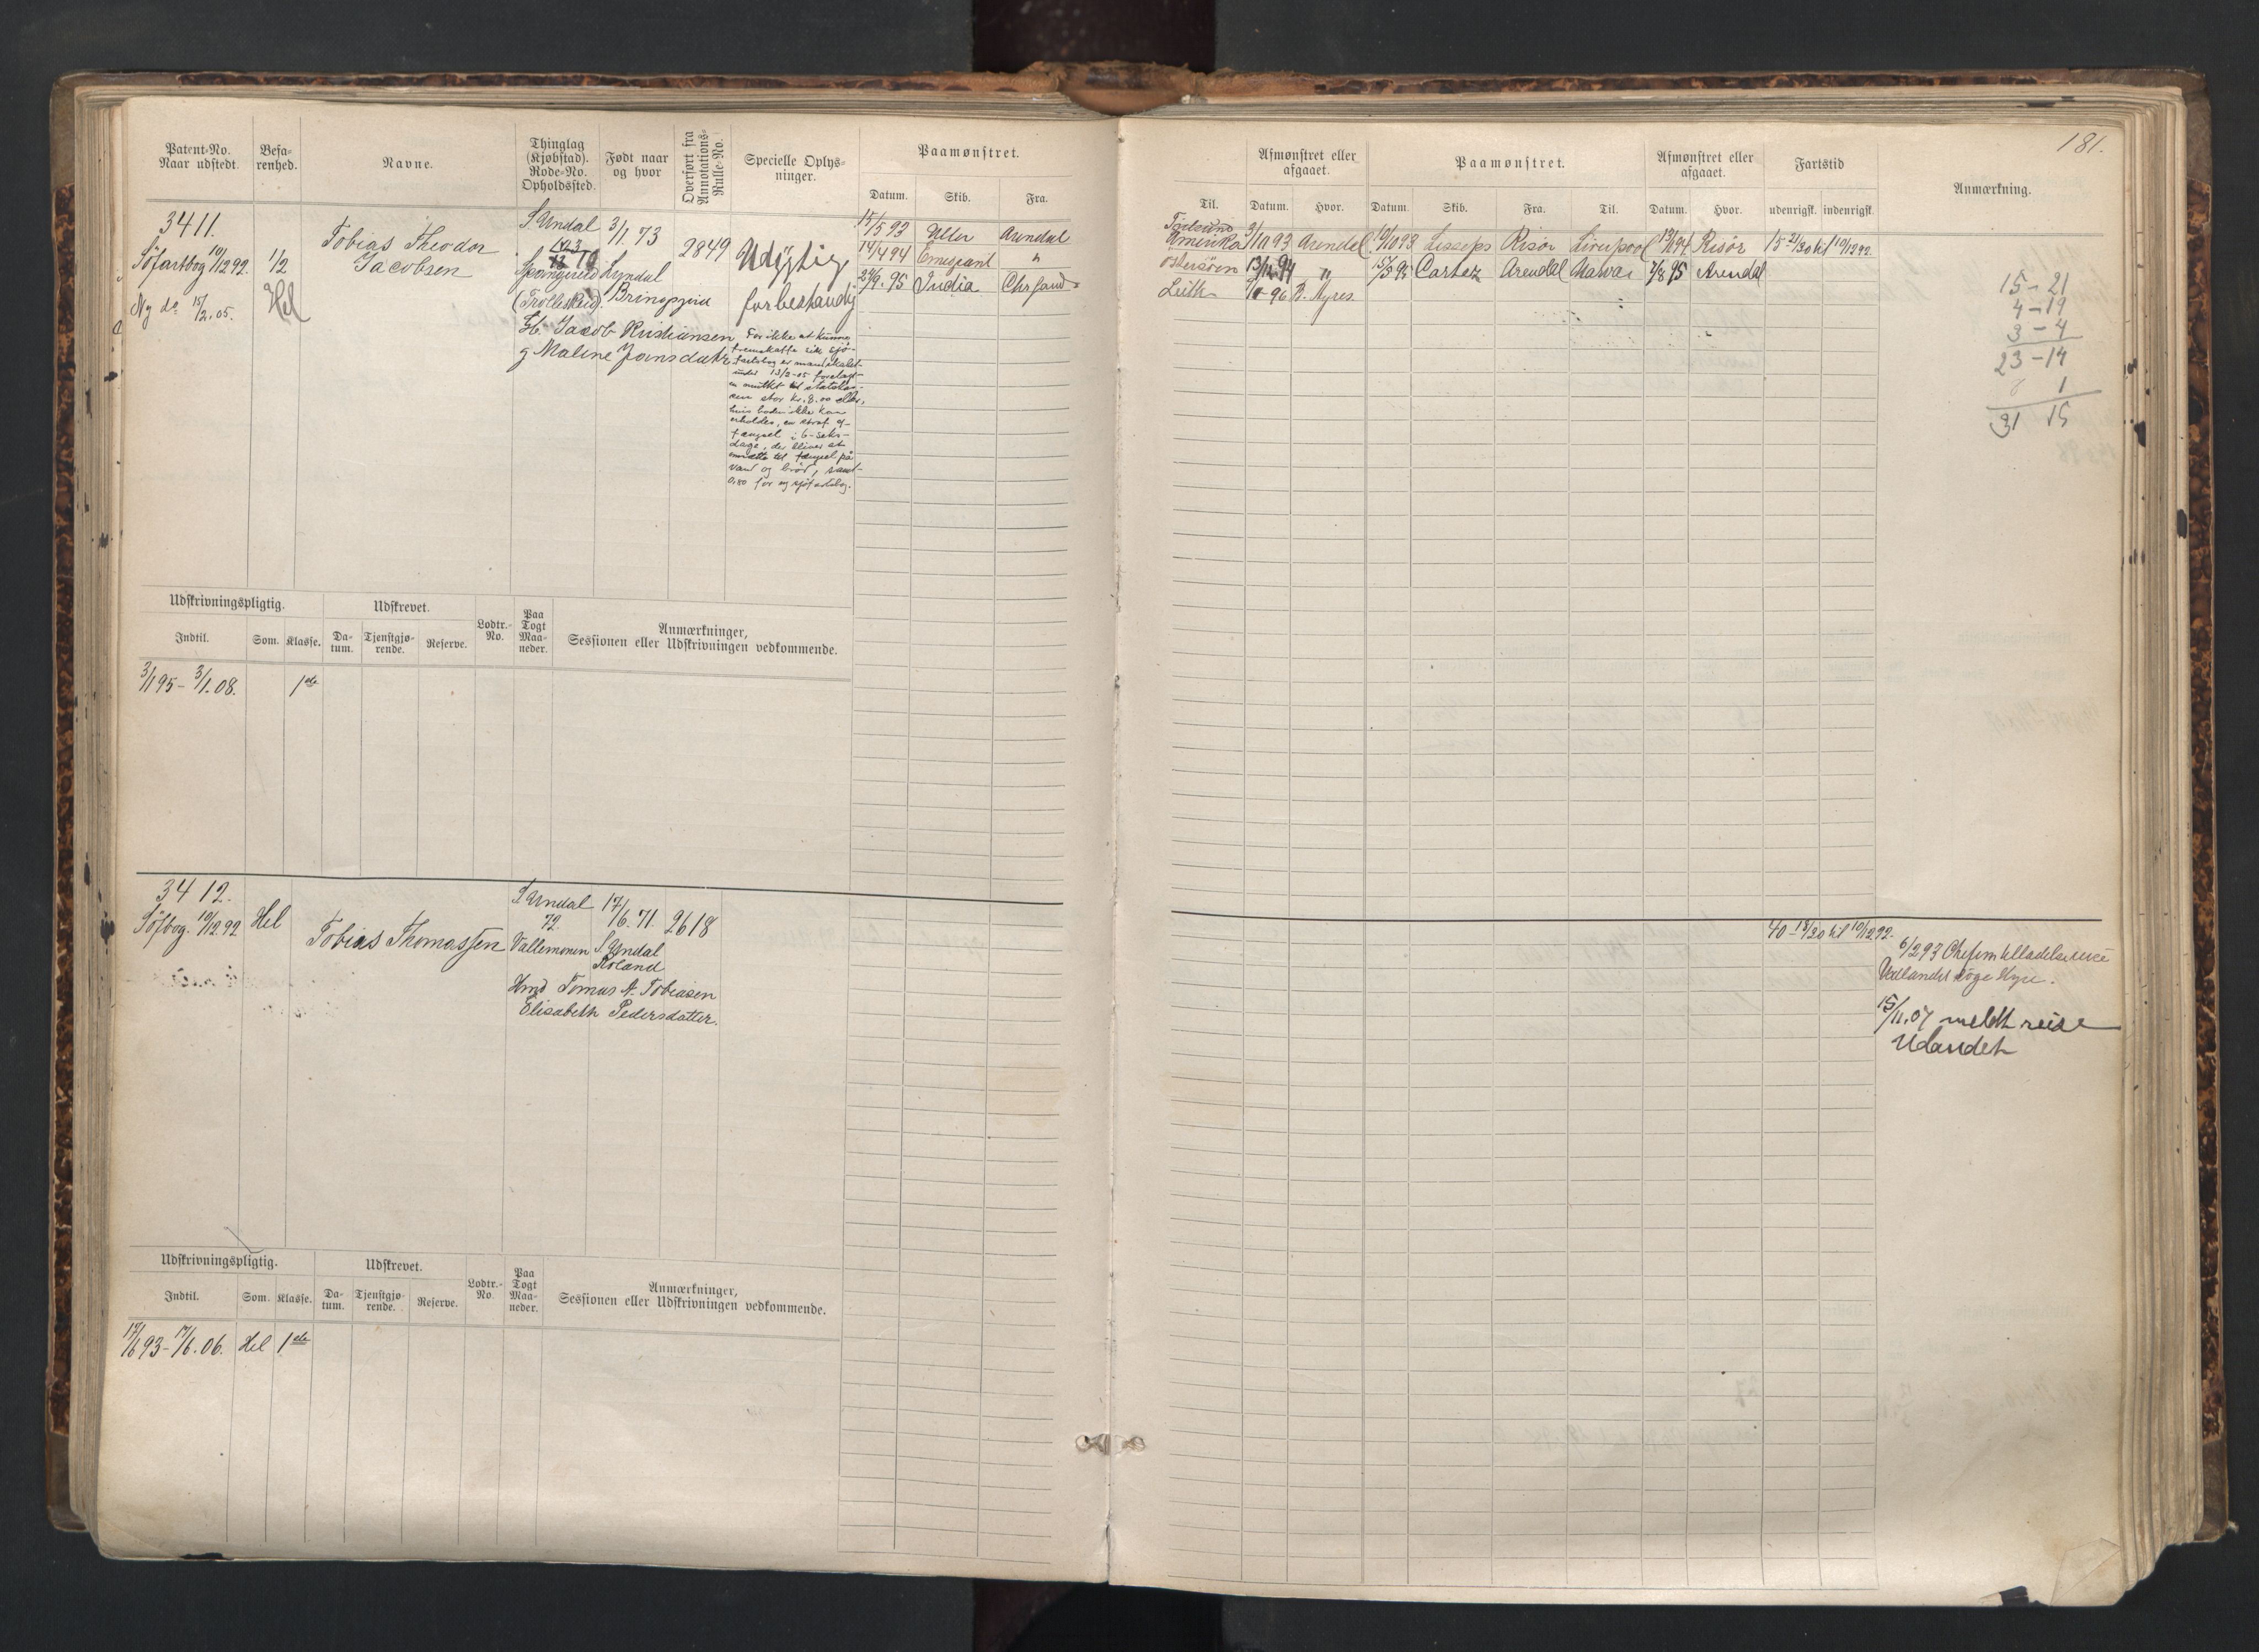 181.
Patent-No.
Naar udstedt.
Befa-
renhed.
Navne.
Thinglag
(Kjøbstad).
Rode-No.
Opholdssted.
Født naar
og hvor
Overført fra
Annotations-
Rulle-No.
Specielle Oplys-
ninger.
Paamønstret.
Datum. Skib. Fra.
Til.
Afmønstret eller
afgaaet.
Datum. Hvor.
Paamønstret.
Datum. Skib. Fra. Til.
Afmønstret eller
afgaaet.
Datum. Hvor.
Fartstid
udenrigsk. indenrigsk.
Anmærkning.
3411.
Söfartbog 10/12 92.
Ny do 15/2.05.
1/2
Hel
Tobias Theodor
Jacobsen
S Undal
123
70
Spangereid
3/1.73
Lyndal
2849
Udygtig
for bestandig
H. Jacob Kristiansen
g Maline Jansdatr
For ikke at kunne
fremskaffe sin sjø-
fartsbog er mandskabet
under 13/2-05 forelagt
en mulkt til statskas-
sen stor kr. 8.00 eller,
hvis boden ikke kan
erholdes, en straf af
fængsel i 6-seks-
dage, der bliver at
omsætte til fængsel på
vand og brød, samt
0,80 for ny sjøfartsbog.
15/5 93 Uller Arendal
14/4 94 Emigrant "
24/9. 95 India Chrsand
Amerika 2/10 93 Arendal 10/10 93 Lesseps Risør Liverpool 13/1 94 Risör 15-21/30 til 10/12 92.
Östersöen 13/11 94 " 15/3 95 Cortez Arendal 7/8 95 Arendal
Leith 96 B. Ayres
15-21
4-19
3-4
23-14
1
31 15
Udskrivningspligtig.
Indtil. Som. Klasse.
Udskrevet.
Da-
tum.
Tjenstgjø-
rende.
Reserve.
Lodtr.-
No.
Paa
Togt
Maa-
neder.
Anmærkninger,
Sessionen eller Udskrivningen vedkommende.
3/1 95 - 3/1.08. 1ste
3412.
Söfbog. 10/12 92
Hel
Tobias Thomassen
S Undal
72.
Vallemonen
17/6.71.
S Undal
Roland
2618
Hmd Tomas A. Tobiasen
Elisabeth Pedersdatter.
40-18/30 til 10/12 92.
6/2 93 Chefens tilladelse reise
Udlandet søge Hyre.
15/11.07 meldt reise
Udlandet
Udskrivningspligtig.
Indtil. Som. Klasse.
Udskrevet.
Da-
tum.
Tjenstgjø-
rende.
Reserve.
Lodtr.-
No.
Paa
Togt
Maa-
neder.
Anmærkninger,
Sessionen eller Udskrivningen vedkommende.
17/6 93 - 17/6.06. Hel 1ste